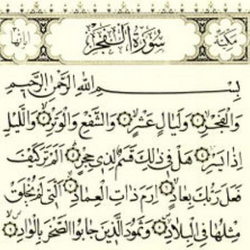 مكية سورة الفجر آياتها
بِسْمِ اللَّهِ الرَّحْمَٰنِ الرَّحِيمِ
وَالْفَجْرِ ۝ وَلَيَالٍ عَشْرٍ ۝ وَالشَّفْعِ وَالْوَتْرِ ۝ وَاللَّيْلِ
إِذَا يَسْرِ ۝ هَلْ فِي ذَٰلِكَ قَسَمٌ لِذِي حِجْرٍ ۝ أَلَمْ تَرَ كَيْفَ
فَعَلَ رَبُّكَ بِعَادٍ ۝ إِرَمَ ذَاتِ الْعِمَادِ ۝ الَّتِي لَمْ يُخْلَقْ
مِثْلُهَا فِي الْبِلَادِ ۝ وَثَمُودَ الَّذِينَ جَابُوا الصَّخْرَ بِالْوَادِ ۝